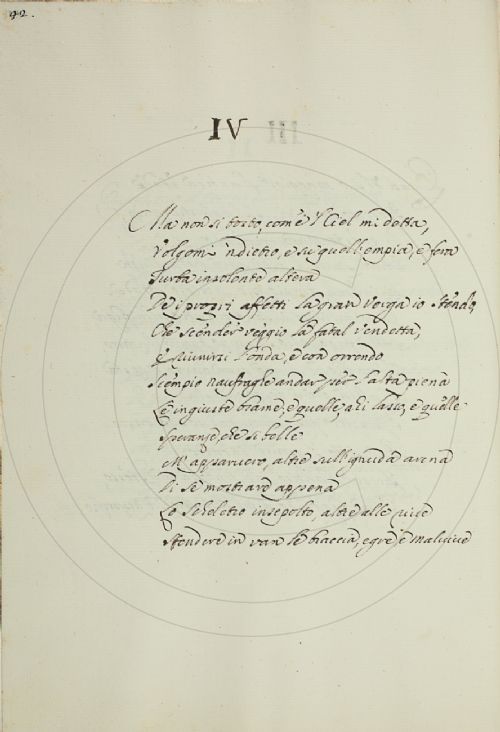 92.
IV
Ma non sì tosto, com'è 'l Ciel mi detta,
Volgomi 'ndietro, e su quell'empia, e fera
Turba insolente altera
De i propri affetti la gran verga io stendo,
Che scender veggio la fatal vendetta,
E riunirsi l'onda, e con orrendo
Scempio naufraghe andar per l'alta piena
Le ingiuste brame, e quelle, ahi lasso, e quelle
Speranze, che sì belle
M'apparvero, altre sull'ignuda arena
Di se mostrare appena
Lo Scheletro insepolto, altre alle rive
Stendere in van le braccia, egre, e malvive